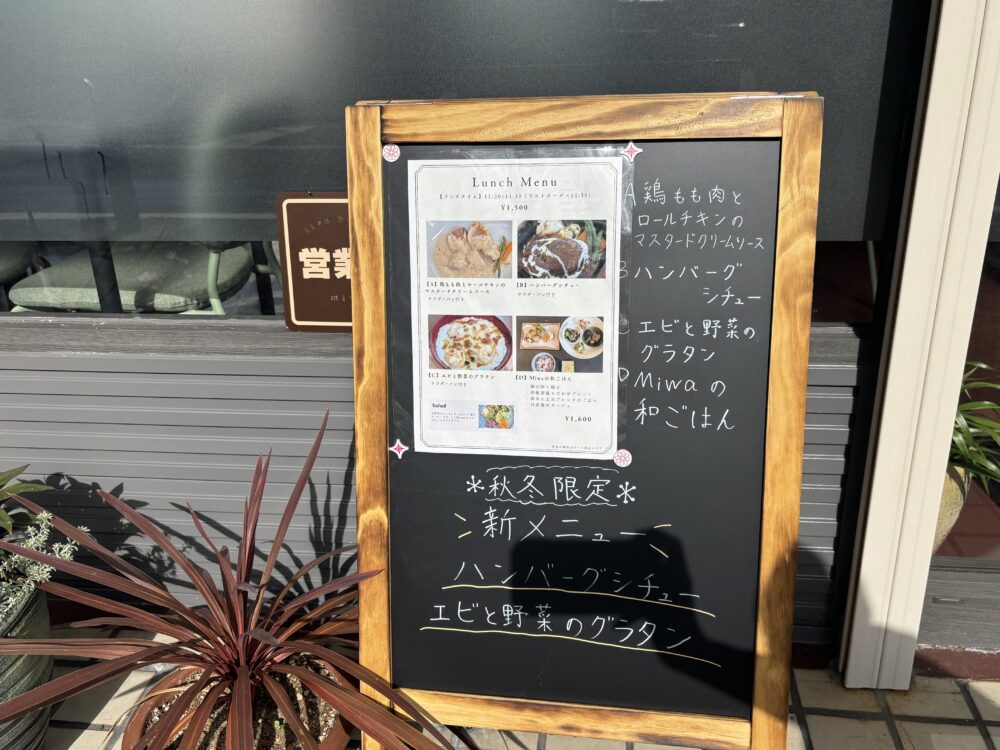 Lunch Menu
【ランチタイム】11:30-14:30（ラストオーダー14:30）
¥1,500
【A】鶏もも肉とロールチキンの
マスタードクリームソース
サラダ・パン付き
【B】ハンバーグシチュー
サラダ・パン付き
【C】エビと野菜のグラタン
サラダ・パン付き
【D】Miwaの和ごはん
¥1,600
Salad
A 鶏もも肉と
ロールチキンの
マスタードクリームソース
B ハンバーグ
シチュー
C エビと野菜の
グラタン
D Miwaの
和ごはん
＊秋冬限定＊
新メニュー
ハンバーグシチュー
エビと野菜のグラタン
営業